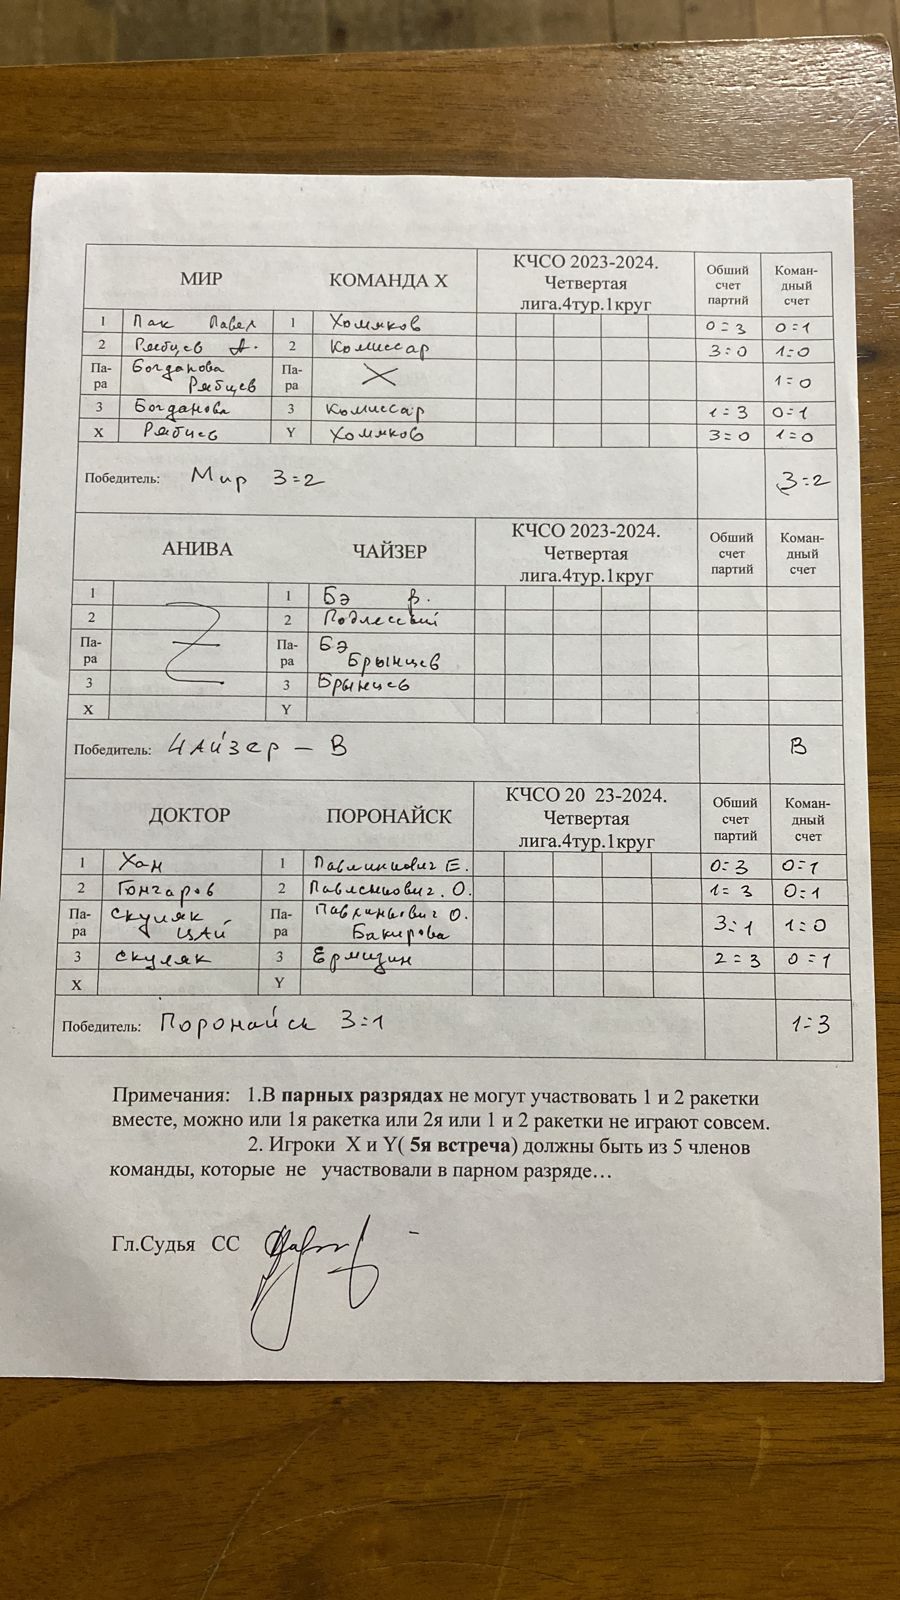 МИР КОМАНДА Х КЧСО 2023-2024. Четвертая лига.4тур.1круг Обший счет партий Коман-дный счет
1 Пак Павел 1 Хомяков 0=3 0=1
2 Рябцев А. 2 Комиссар 3=0 1=0
Па-ра Богданова Рябцев Па-ра 1=0
3 Богданова 3 Комиссар 1=3 0=1
Х Рябцев Y Хомяков 3=0 1=0
Победитель: Мир 3=2 3=2
АНИВА ЧАЙЗЕР КЧСО 2023-2024. Четвертая лига.4тур.1круг Обший счет партий Коман-дный счет
1 1 Бэ В.
2 2 Подлесский
Па-ра Па-ра Бэ Брынцев
3 3 Брынцев
Х Y
Победитель: Чайзер – В В
ДОКТОР ПОРОНАЙСК КЧСО 20 23-2024. Четвертая лига.4тур.1круг Обший счет партий Коман-дный счет
1 Хан 1 Е. 0=3 0=1
2 Гончаров 2 О. 1=3 0=1
Па-ра Скуляк Цай Па-ра О. Бакирова 3=1 1=0
3 Скуляк 3 Ермизин 2=3 0=1
Х Y
Победитель: Поронайск 3=1 1=3
Примечания: 1.В парных разрядах не могут участвовать 1 и 2 ракетки
вместе, можно или 1я ракетка или 2я или 1 и 2 ракетки не играют совсем.
2. Игроки Х и Y( 5я встреча) должны быть из 5 членов
команды, которые не участвовали в парном разряде…
Гл.Судья СС